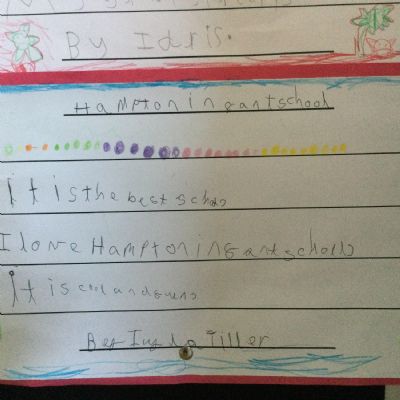 By Idris.
Hampton in gant school
It is the best schoo
I love Hampton in gant school
It is cool and
Tiller